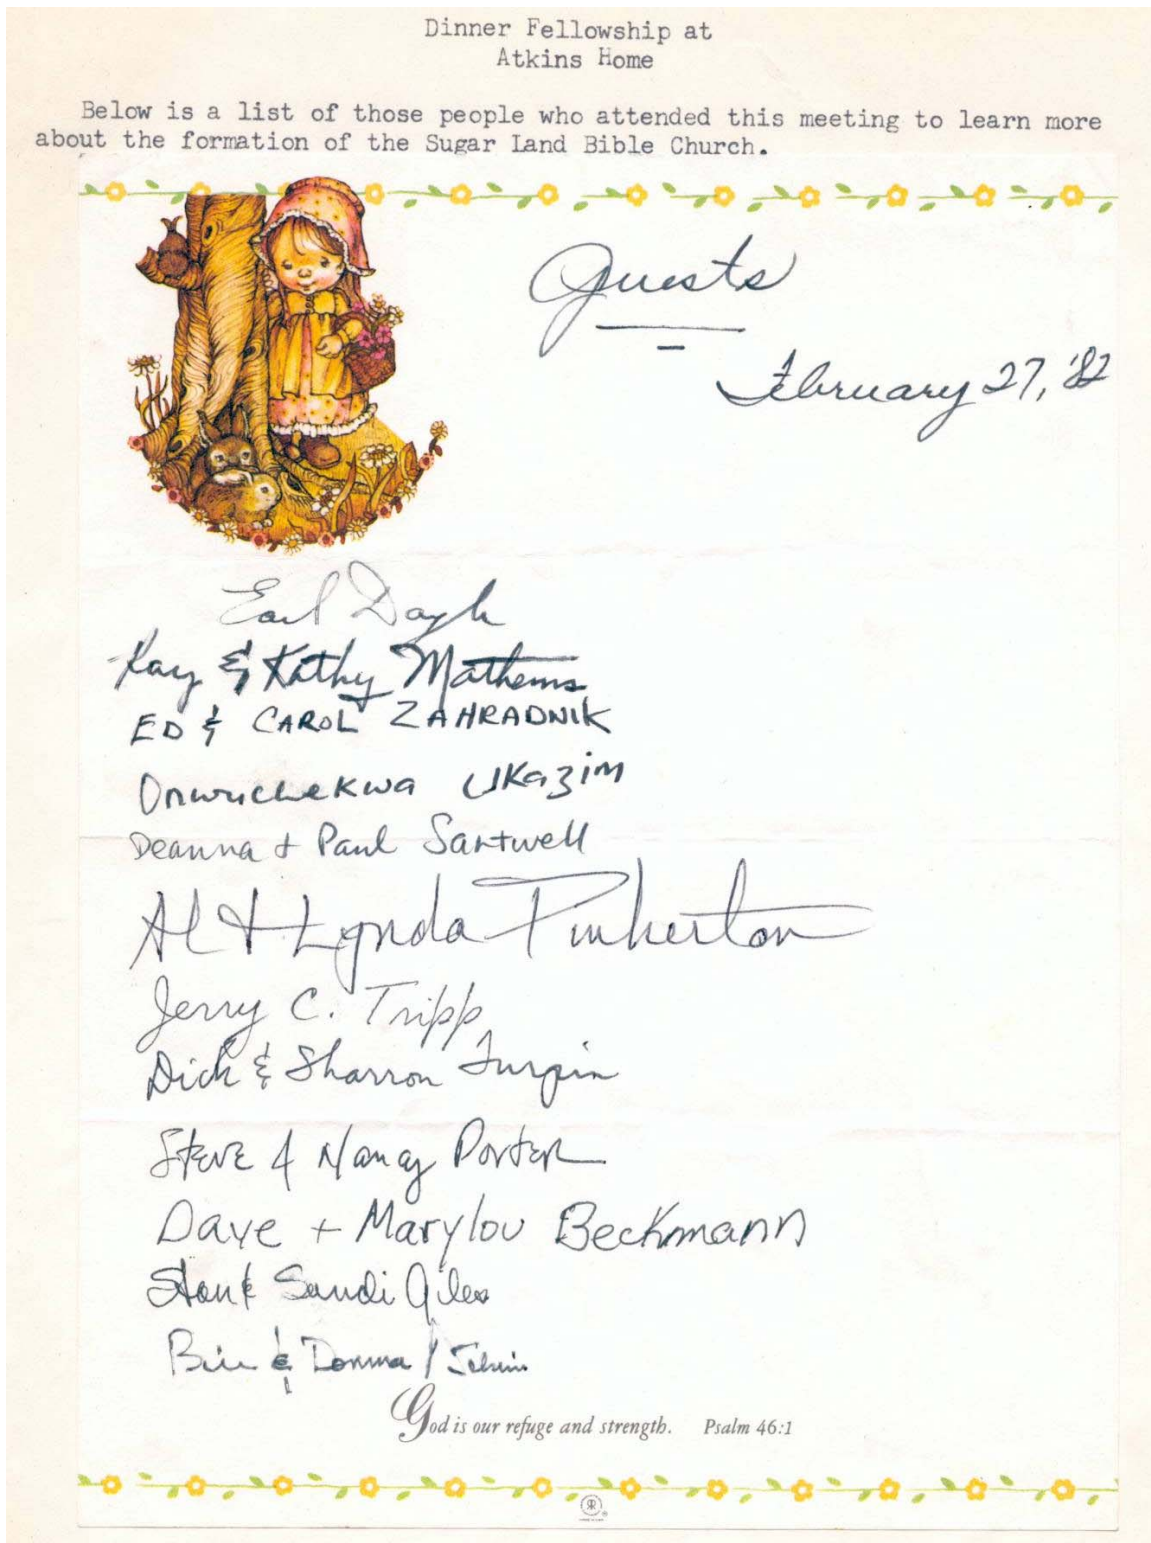 Dinner Fellowship at
Atkins Home
Below is a list of those people who attended this meeting to learn more
about the formation of the Sugar Land Bible Church.
Guests
February 27, '82
Earl
Ray & Kathy Mathews
ED & CAROL ZAHRADNIK
Onwuchekwa Ukazim
Deanna + Paul Sartwell
Al + Lynda Pinkerton
Jerry C. Tripp
Dick & Sharron Turpin
Steve & Nancy Porter
Dave + Marylou Beckmann
Stan & Sandi Giles
Bill & Donna
God is our refuge and strength. Psalm 46:1